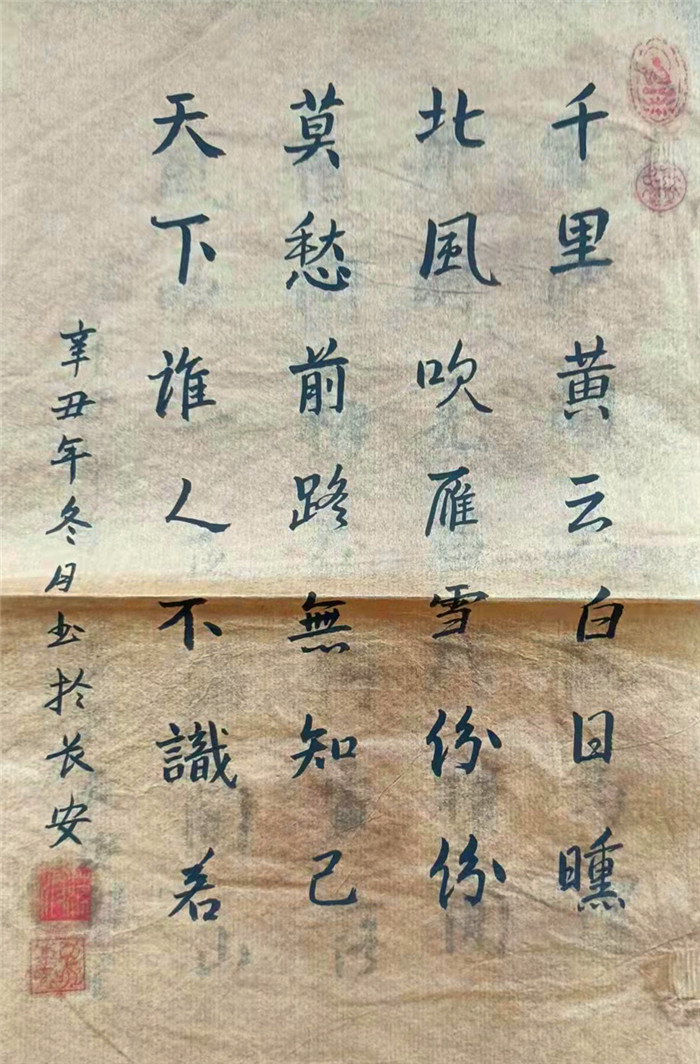 千里黄云白日曛
北風吹雁雪份份
莫愁前路無知己
天下谁人不識君
辛丑年冬月书於长安